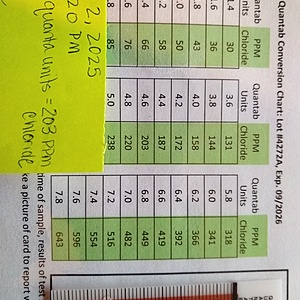 Quantab Conversion Chart: Lot #4272A, Exp. 09/2026
Quantab Units PPM Chloride Quantab Units PPM Chloride Quantab Units PPM Chloride
1.4 30 3.6 131 5.8 318
.6 36 3.8 144 6.0 341
.8 43 4.0 158 6.2 366
.0 50 4.2 172 6.4 392
.2 58 4.4 187 6.6 419
.4 66 4.6 203 6.8 449
.6 76 4.8 220 7.0 482
.8 85 5.0 238 7.2 516
7.4 554
7.6 596
7.8 643
2, 2025
20 PM
quanta units = 203 ppm
Chloride
time of sample, results of test
ke a picture of card to report